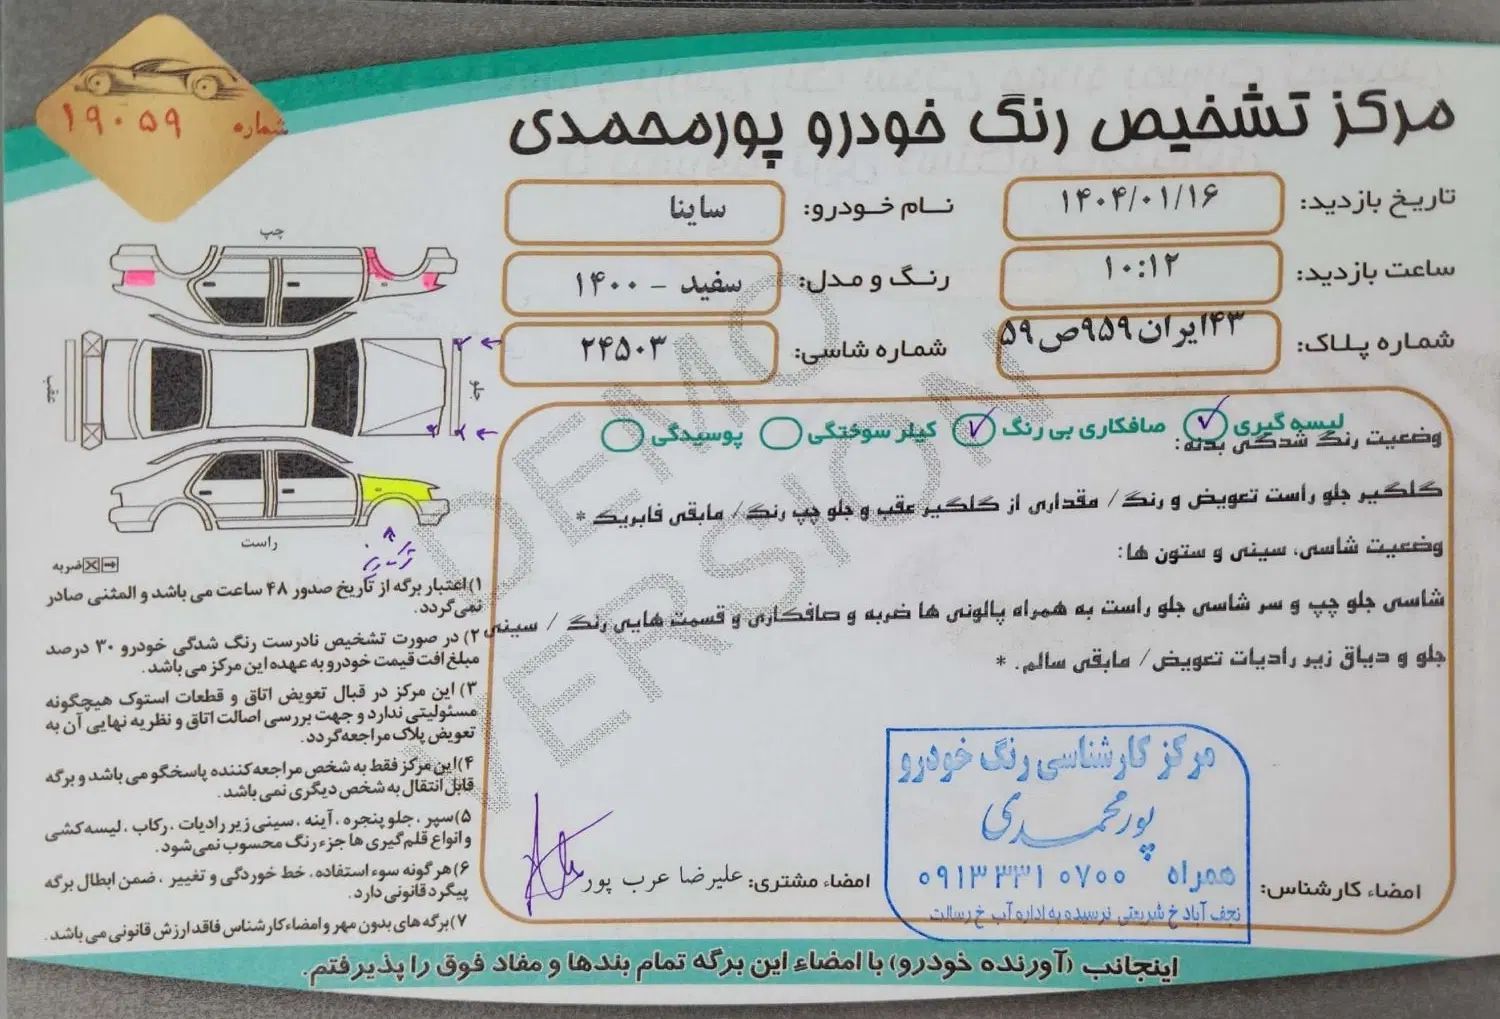 شماره ۱۹۰۵۹
مرکز تشخیص رنگ خودرو پورمحمدی
تاریخ بازدید: ۱۴۰۴/۰۱/۱۶
نـام خـودرو: ساینا
ساعت بازدید: ۱۰:۱۲
رنگ و مدل: سفید - ۱۴۰۰
شماره پلاک: ۴۳ایران۹۵۹ص۵۹
شماره شاسی: ۲۴۵۰۳
لیسه گیری صافکاری بی رنگ کیلر سوختگی پوسیدگی
وضعیت رنگ شدگی بدنه:
گلگیر جلو راست تعویض و رنگ/ مقداری از گلگیر عقب و جلو چپ رنگ/ مابقی فابریک *
وضعیت شاسی، سینی و ستون ها:
شاسی جلو چپ و سر شاسی جلو راست به همراه پالونی ها ضربه و صافکاری و قسمت هایی رنگ / سینی
جلو و دیاق زیر رادیات تعویض/ مابقی سالم. *
DEMO
VERSION
چپ
عقب
جلو
راست
ضربه
۱) اعتبار برگه از تاریخ صدور ۴۸ ساعت می باشد و المثنی صادر
نمی‌گردد.
۲) در صورت تشخیص نادرست رنگ شدگی خودرو ۳۰ درصد
مبلغ افت قیمت خودرو به عهده این مرکز می باشد.
۳) این مرکز در قبال تعویض اتاق و قطعات استوک هیچگونه
مسئولیتی ندارد و جهت بررسی اصالت اتاق و نظریه نهایی آن به
تعویض پلاک مراجعه گردد.
۴) این مرکز فقط به شخص مراجعه کننده پاسخگو می باشد و برگه
قابل انتقال به شخص دیگری نمی باشد.
۵) سپر ، جلو پنجره ، آینه ، سینی زیر رادیات ، رکاب ، لیسه کشی
و انواع قلم گیری ها جزء رنگ محسوب نمی شود.
۶) هر گونه سوء استفاده ، خط خوردگی و تغییر ، ضمن ابطال برگه
پیگرد قانونی دارد.
۷) برگه های بدون مهر و امضاء کارشناس فاقد ارزش قانونی می باشد.
امضاء کارشناس:
مرکز کارشناسی رنگ خودرو
پورمحمدی
همراه ۰۹۱۳ ۳۳۱ ۰۷۰۰
نجف آباد خ شریعتی نرسیده به اداره آب خ رسالت
امضاء مشتری: علیرضا عرب پور
اینجانب (آورنده خودرو) با امضاء این برگه تمام بندها و مفاد فوق را پذیرفتم.